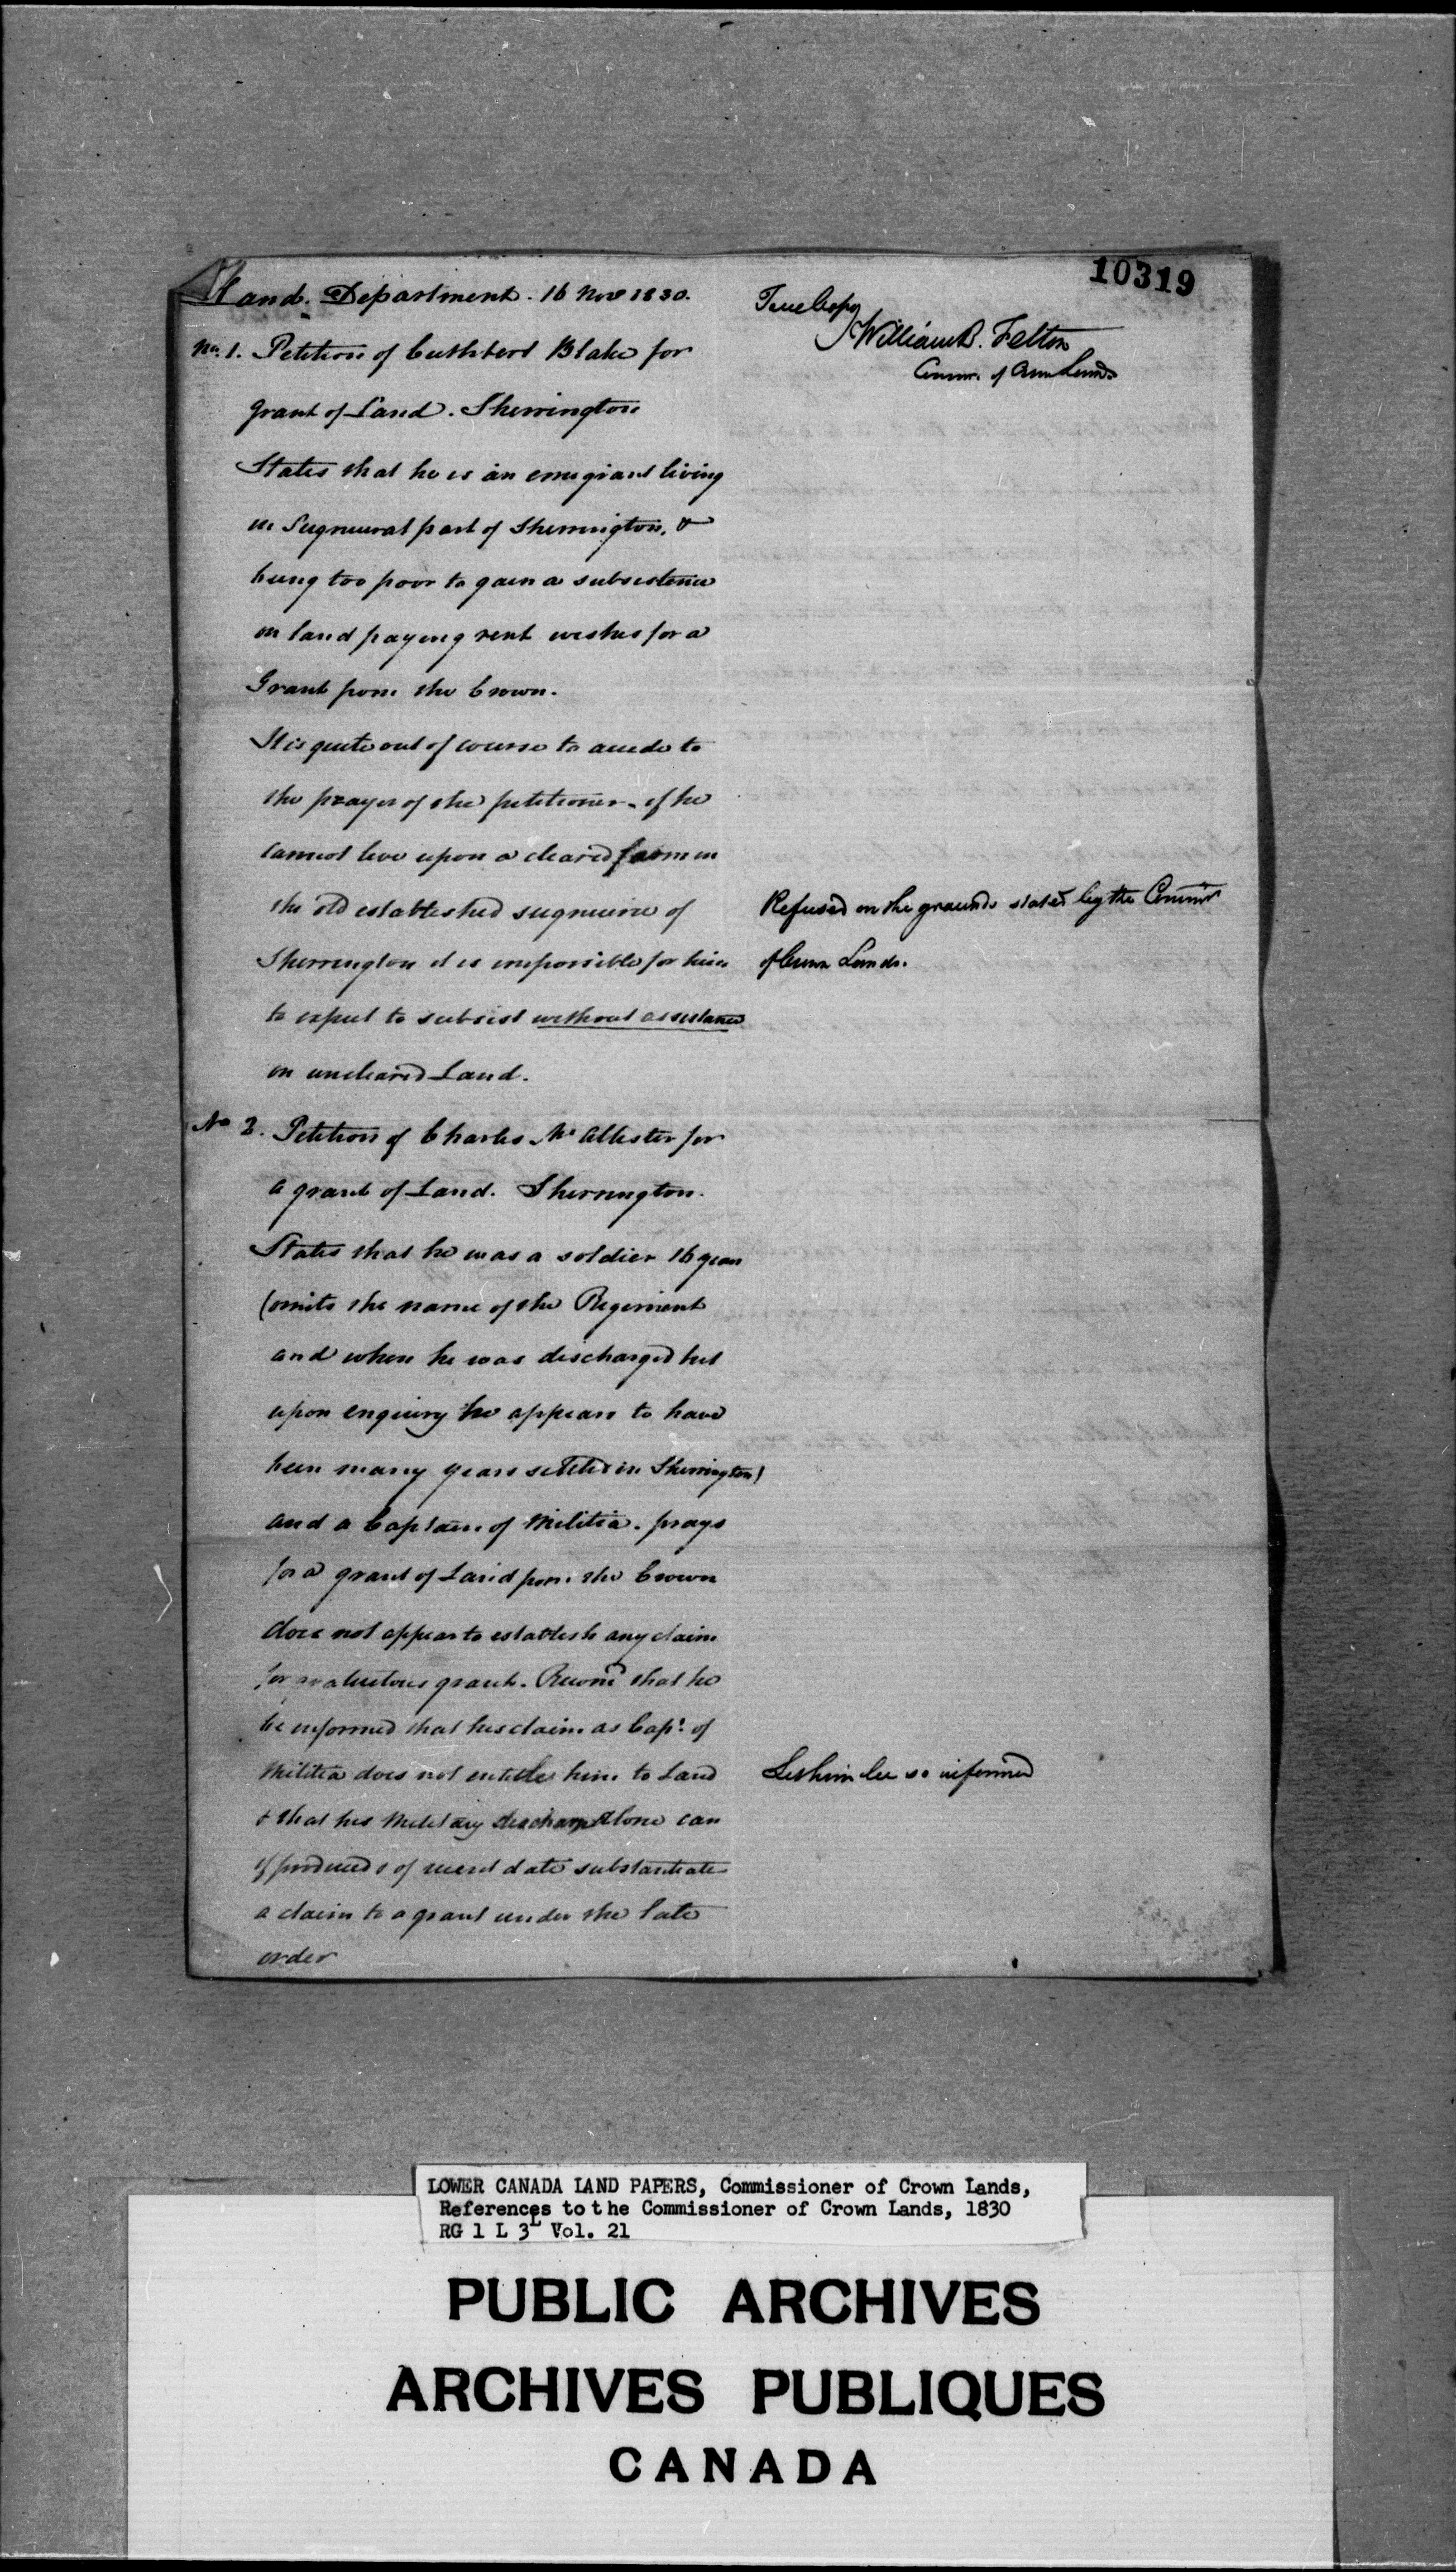 10319
Land Department. 16 Nov 1830.
True Copy
William B. Felton
Commr. of Crown Lands
No. 1. Petition of Cuthbert Blake for
grant of Land. Sherrington
States that he is an emigrant living
in Seigneural part of Sherrington, &
being too poor to gain a subsistence
on land paying rent wishes for a
Grant from the Crown.
It is quite out of course to accede to
the prayer of the petitioner - if he
cannot live upon a cleared farm in
the old established seigneurie of
Sherrington it is impossible for him
to expect to subsist without assistance
on uncleared Land.
Refused on the grounds stated by the Commr
of Crown Lands.
No 2. Petition of Charles Mc Allister for
a grant of Land. Sherrington.
States that he was a soldier 16 years
(omits the name of the Regiment
and when he was discharged but
upon enquiry he appears to have
been many years settled in Sherrington)
and a Captain of Militia. prays
for a grant of Land from the Crown
does not appear to establish any claim
for gratuitous grant. Recomd that he
be informed that his claim as Capt. of
Militia does not entitle him to Land
& that his Military discharge alone can
if produced & of recent date substantiate
a claim to a grant under the late
order
Let him be so informed
LOWER CANADA LAND PAPERS, Commissioner of Crown Lands,
References to the Commissioner of Crown Lands, 1830
RG 1 L 3L Vol. 21
PUBLIC ARCHIVES
ARCHIVES PUBLIQUES
CANADA